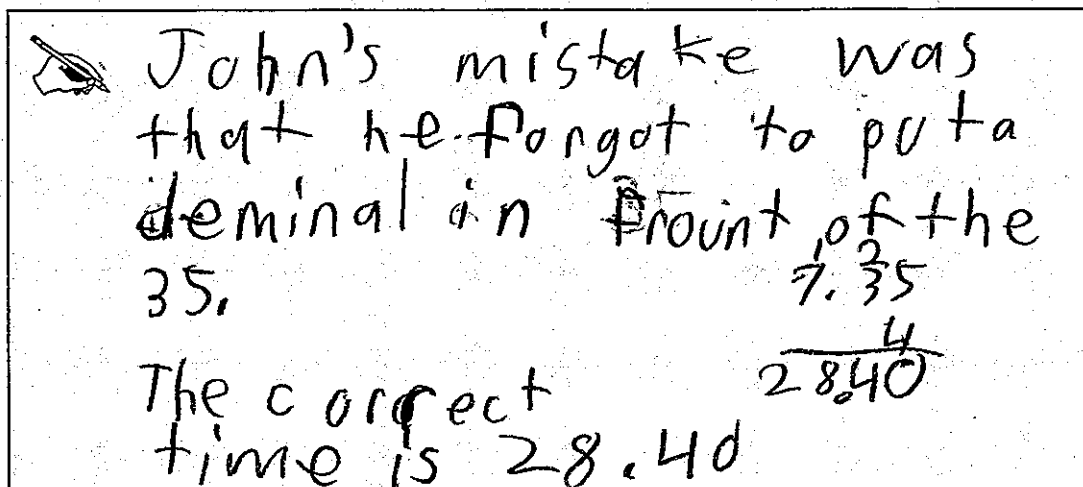 John's mistake was
that he forgot to put a
deminal in frount of the
35.
1 2
7.35
4
28.40
The correct
time is 28.40